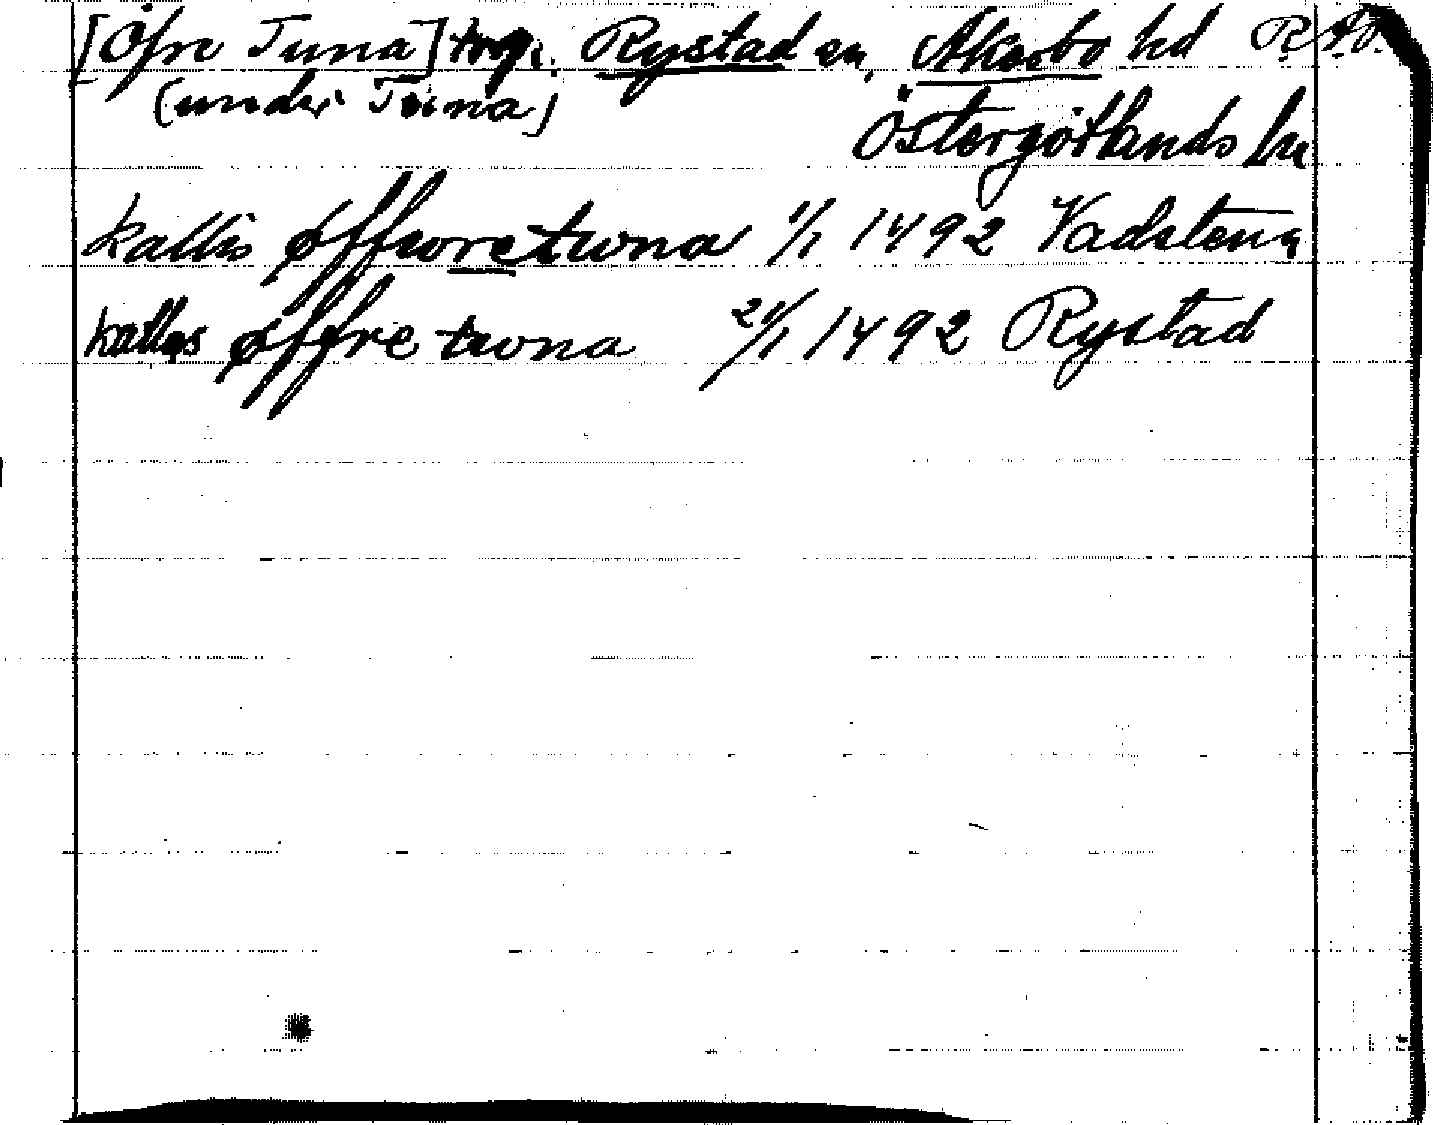 [Öfre Tuna] torp. Rystad sn, Åkerbo hd R.A.P.
(under Tuna) Östergötlands län
kallis øffworetwna 1/1 1492 Vadstena
kallas øffre twna 21/1 1492 Rystad